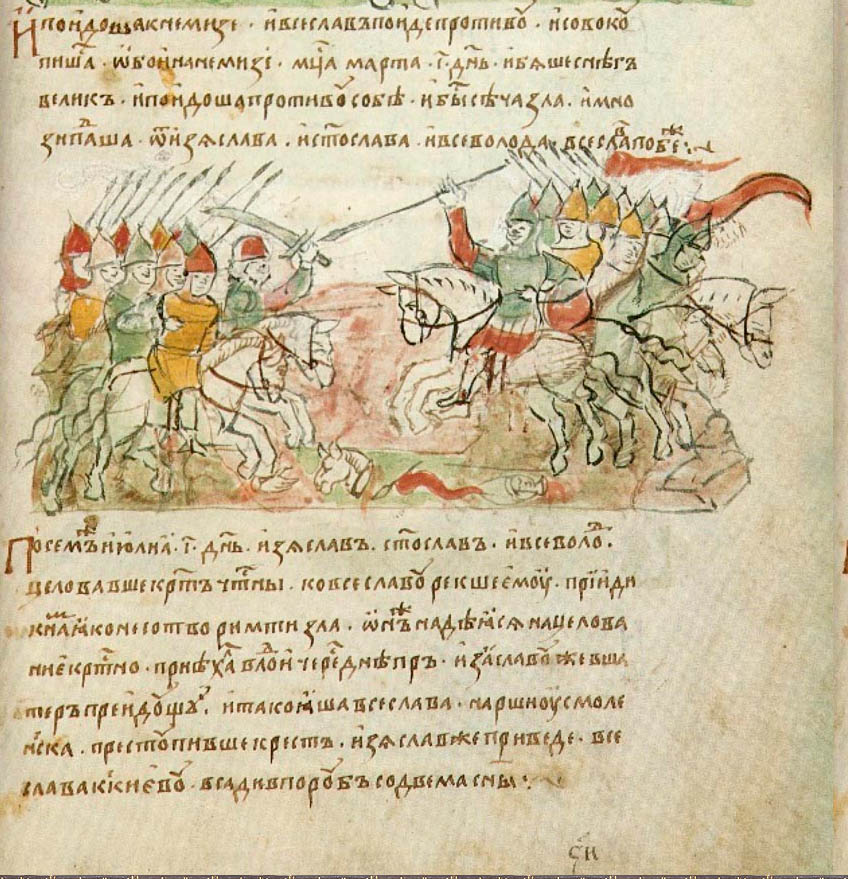 И поидоша к Немизе · и Всеславъ поиде противоу · и совокоу
пишас̑ · ѿбои на Немизѣ · мц̑а марта · г҃ · дн҃ь · и бяше снѣгъ
великъ · и поидоша противоу собѣ · и быс̑ сѣча зла · и мно
зи падша · ѿ Изяслава · и Ст҃ослава · и Всеволода · Всеславъ побѣже
По сем же июля · і҃ · дн҃ь · Изяславъ · Ст҃ославъ · и Всеволод ·
целовавше крс̑тъ чс̑тны · ко Всеславоу рекше емоу · прїиди
к нам яко не сотворим ти зла · ѿн же надѣяся на целова
ние крс̑тно · приѣха в лодьи чересъ Днѣпръ · Изяславоу же в ша
теръ преидоущу · и тако яша Всеслава · на Рши оу Смоле
нска · престоупивше крестъ · Изяслав же приведе · Все
слава к Киевоу · всади в пороубъ со двема сн҃ы
с҃и